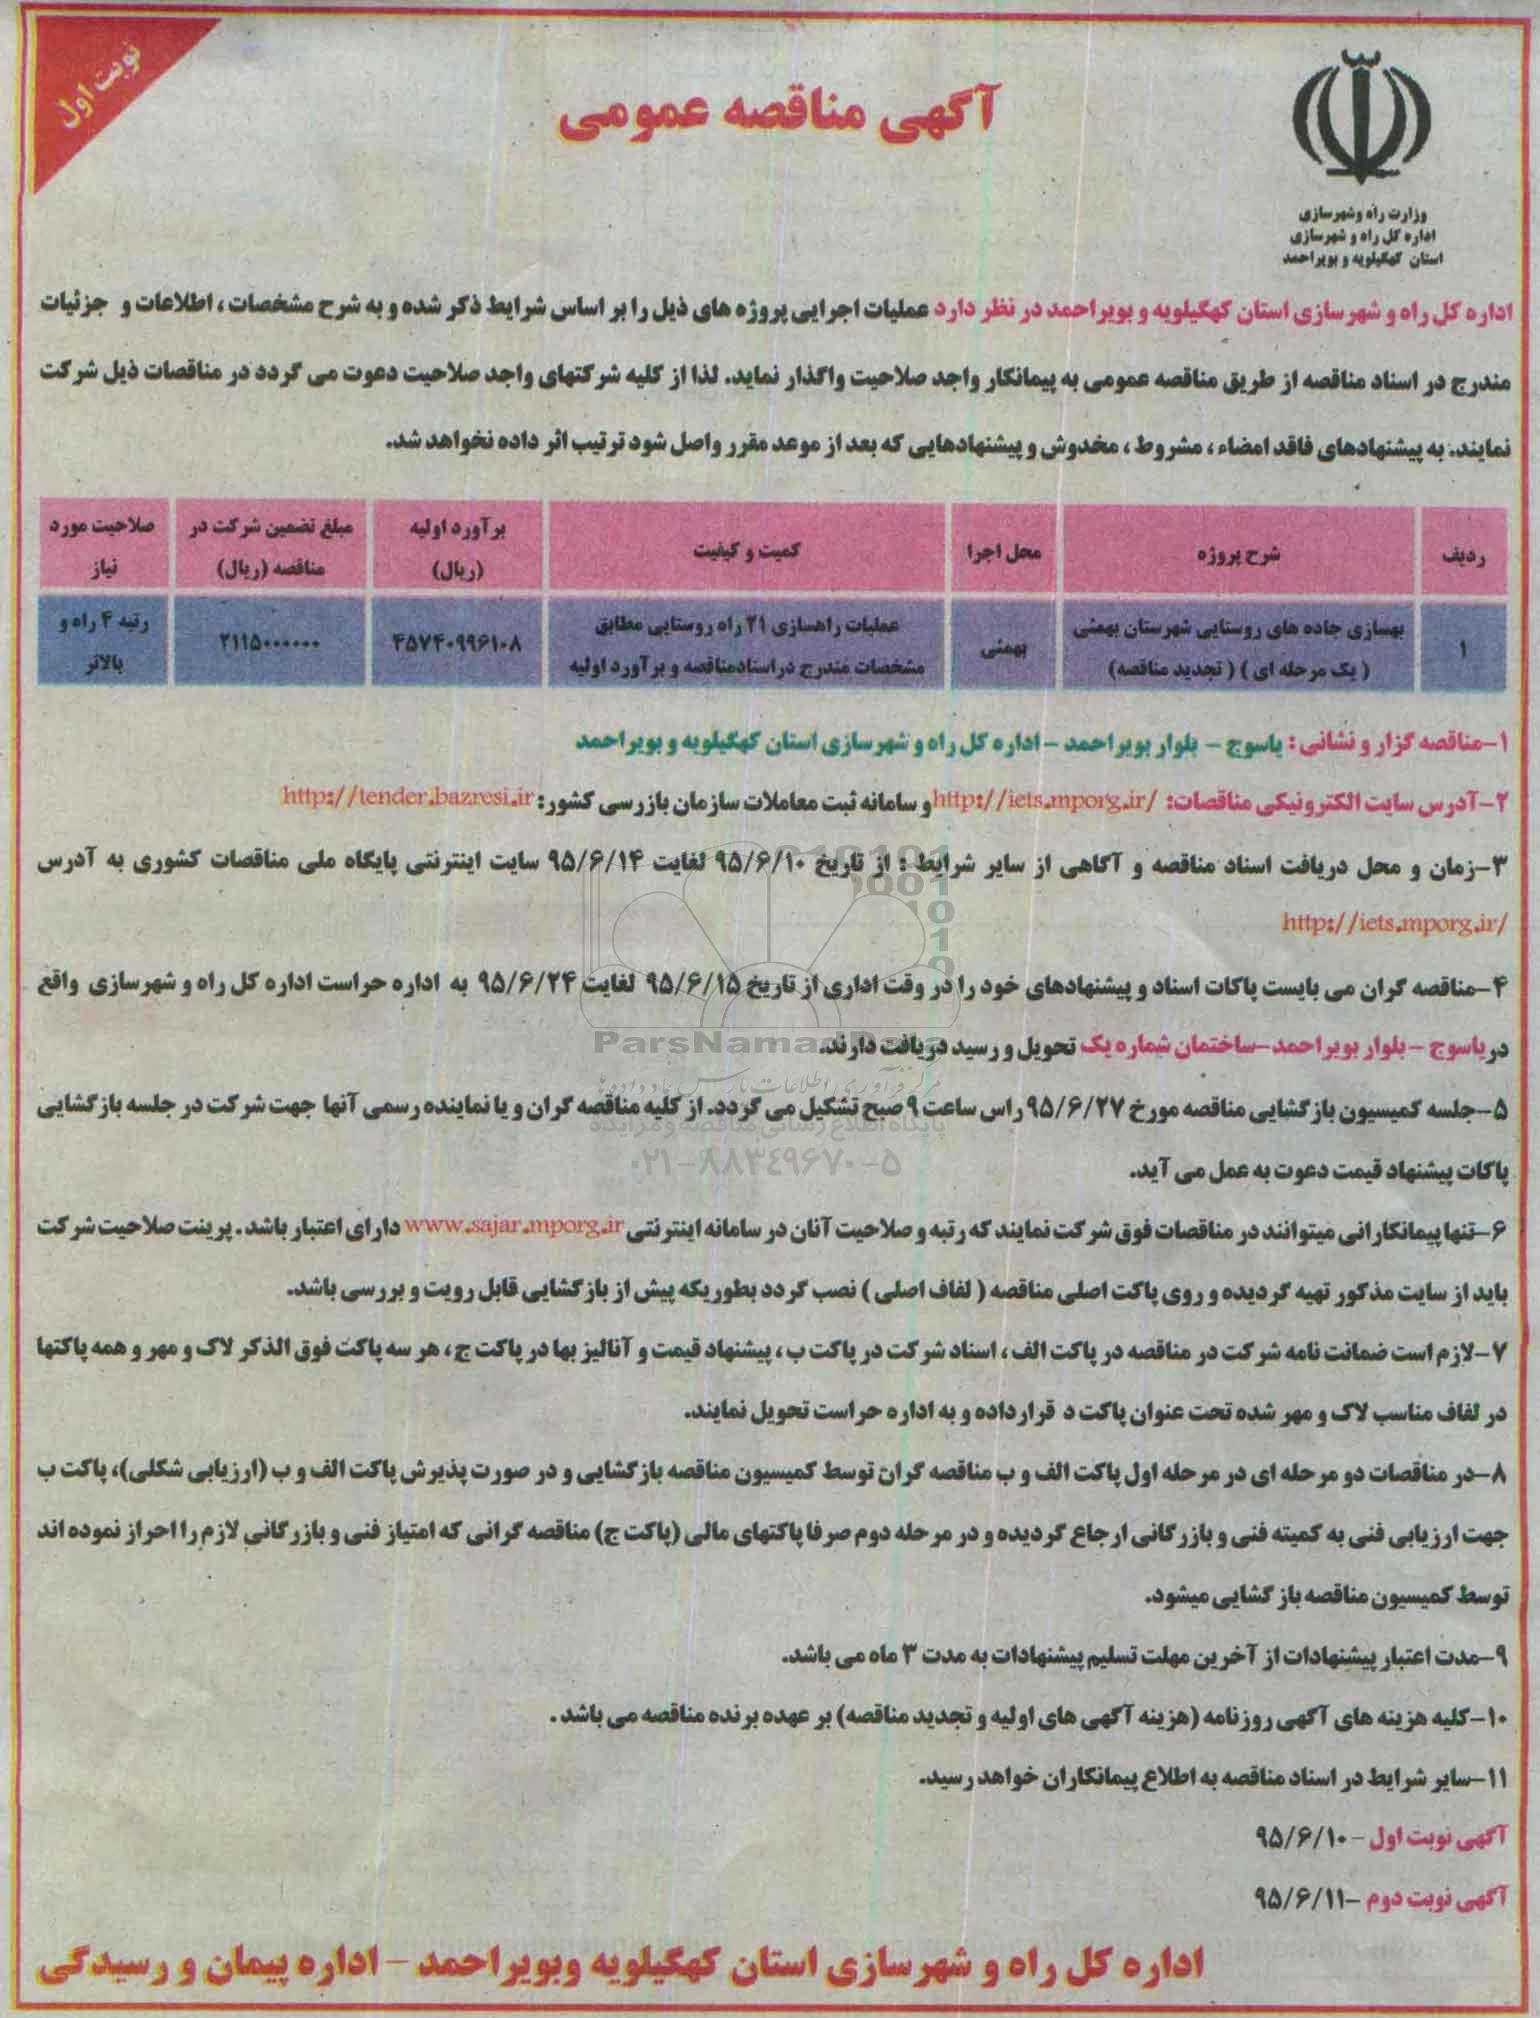 نوبت اول
آگهی مناقصه عمومی
وزارت راه وشهرسازی
اداره کل راه و شهرسازی
استان کهگیلویه و بویراحمد
اداره کل راه و شهرسازی استان کهگیلویه و بویراحمد در نظر دارد عملیات اجرایی پروژه های ذیل را بر اساس شرایط ذکر شده و به شرح مشخصات ، اطلاعات و جزئیات
مندرج در اسناد مناقصه از طریق مناقصه عمومی به پیمانکار واجد صلاحیت واگذار نماید. لذا از کلیه شرکتهای واجد صلاحیت دعوت می گردد در مناقصات ذیل شرکت
نمایند. به پیشنهادهای فاقد امضاء ، مشروط ، مخدوش و پیشنهادهایی که بعد از موعد مقرر واصل شود ترتیب اثر داده نخواهد شد.
ردیف
شرح پروژه
محل اجرا
کمیت و کیفیت
برآورد اولیه
(ریال)
مبلغ تضمین شرکت در
مناقصه (ریال)
صلاحیت مورد
نیاز
۱
بهسازی جاده های روستایی شهرستان بهمئی
( یک مرحله ای ) ( تجدید مناقصه)
بهمئی
عملیات راهسازی ۲۱ راه روستایی مطابق
مشخصات مندرج دراسنادمناقصه و برآورد اولیه
۴۵۷۴۰۹۹۶۱۰۸
۲۱۱۵۰۰۰۰۰۰
رتبه ۴ راه و
بالاتر
۱-مناقصه گزار و نشانی : یاسوج - بلوار بویراحمد - اداره کل راه و شهرسازی استان کهگیلویه و بویراحمد
۲-آدرس سایت الکترونیکی مناقصات: http://iets.mporg.ir/ و سامانه ثبت معاملات سازمان بازرسی کشور: http://tender.bazresi.ir
۳-زمان و محل دریافت اسناد مناقصه و آگاهی از سایر شرایط : از تاریخ ۹۵/۶/۱۰ لغایت ۹۵/۶/۱۴ سایت اینترنتی پایگاه ملی مناقصات کشوری به آدرس
http://iets.mporg.ir/
۴-مناقصه گران می بایست پاکات اسناد و پیشنهادهای خود را در وقت اداری از تاریخ ۹۵/۶/۱۵ لغایت ۹۵/۶/۲۴ به اداره حراست اداره کل راه و شهرسازی واقع
دریاسوج -بلوار بویراحمد-ساختمان شماره یک تحویل و رسید دریافت دارند.
ParsNamadData
مرکز فرآوری اطلاعات پارس نماد داده ها
۵-جلسه کمیسیون بازگشایی مناقصه مورخ ۹۵/۶/۲۷ راس ساعت ۹ صبح تشکیل می گردد. از کلیه مناقصه گران و یا نماینده رسمی آنها جهت شرکت در جلسه بازگشایی
پایگاه اطلاع رسانی مناقصه و مزایده
پاکات پیشنهاد قیمت دعوت به عمل می آید.
۰۲۱-۸۸۳۴۹۶۷۰-۵
۶-تنها پیمانکارانی میتوانند در مناقصات فوق شرکت نمایند که رتبه و صلاحیت آنان در سامانه اینترنتی www.sajar.mporg.ir دارای اعتبار باشد . پرینت صلاحیت شرکت
باید از سایت مذکور تهیه گردیده و روی پاکت اصلی مناقصه ( لفاف اصلی ) نصب گردد بطوریکه پیش از بازگشایی قابل رویت و بررسی باشد.
۷-لازم است ضمانت نامه شرکت در مناقصه در پاکت الف ، اسناد شرکت در پاکت ب ، پیشنهاد قیمت و آنالیز بها در پاکت ج ، هر سه پاکت فوق الذکر لاک و مهر و همه پاکتها
در لفاف مناسب لاک و مهر شده تحت عنوان پاکت د قرارداده و به اداره حراست تحویل نمایند.
۸-در مناقصات دو مرحله ای در مرحله اول پاکت الف و ب مناقصه گران توسط کمیسیون مناقصه بازگشایی و در صورت پذیرش پاکت الف و ب (ارزیابی شکلی)، پاکت ب
جهت ارزیابی فنی به کمیته فنی و بازرگانی ارجاع گردیده و در مرحله دوم صرفا پاکتهای مالی (پاکت ج) مناقصه گرانی که امتیاز فنی و بازرگانی لازم را احراز نموده اند
توسط کمیسیون مناقصه باز گشایی میشود.
۹-مدت اعتبار پیشنهادات از آخرین مهلت تسلیم پیشنهادات به مدت ۳ ماه می باشد.
۱۰-کلیه هزینه های آگهی روزنامه (هزینه آگهی های اولیه و تجدید مناقصه) بر عهده برنده مناقصه می باشد .
۱۱-سایر شرایط در اسناد مناقصه به اطلاع پیمانکاران خواهد رسید.
آگهی نوبت اول - ۹۵/۶/۱۰
آگهی نوبت دوم -۹۵/۶/۱۱
اداره کل راه و شهرسازی استان کهگیلویه وبویراحمد - اداره پیمان و رسیدگی